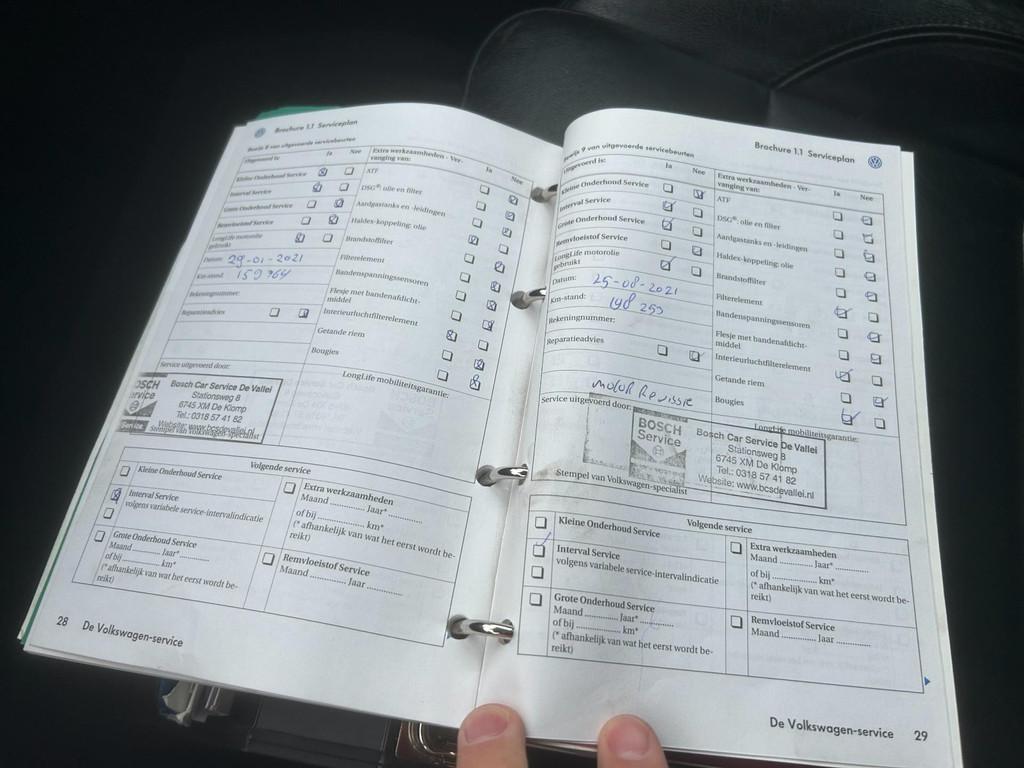 Brochure 1.1 Serviceplan
Bewijs 8 van uitgevoerde servicebeurten
Uitgevoerd is:
Ja
Nee
Kleine Onderhoud Service
Interval Service
Grote Onderhoud Service
Remvloeistof Service
LongLife motorolie
gebruikt
Datum: 29-01-2021
Km-stand: 159764
Rekeningnummer:
Reparatieadvies
Service uitgevoerd door:
BOSCH
Service
Bosch Car Service De Vallei
Stationsweg 8
6745 XM De Klomp
Tel.: 0318 57 41 82
Website: www.bcsdevallei.nl
Stempel van Volkswagen-specialist
Extra werkzaamheden - Ver-
vanging van:
Ja
Nee
ATF
DSG®: olie en filter
Aardgastanks en -leidingen
Haldex-koppeling: olie
Brandstoffilter
Filterelement
Bandenspanningssensoren
Flesje met bandenafdicht-
middel
Interieurluchtfilterelement
Getande riem
Bougies
LongLife mobiliteitsgarantie:
Volgende service
Kleine Onderhoud Service
Interval Service
volgens variabele service-intervalindicatie
Grote Onderhoud Service
Maand ........... Jaar* ............
of bij ........... km*
(* afhankelijk van wat het eerst wordt be-
reikt)
Extra werkzaamheden
Maand ........... Jaar* ............
of bij ........... km*
(* afhankelijk van wat het eerst wordt be-
reikt)
Remvloeistof Service
Maand ............ Jaar ............
28 De Volkswagen-service
Brochure 1.1 Serviceplan
Bewijs 9 van uitgevoerde servicebeurten
Uitgevoerd is:
Ja
Nee
Kleine Onderhoud Service
Interval Service
Grote Onderhoud Service
Remvloeistof Service
LongLife motorolie
gebruikt
Datum: 25-08-2021
Km-stand: 198 253
Rekeningnummer:
Reparatieadvies
motor Revissie
Service uitgevoerd door:
BOSCH
Service
Bosch Car Service De Vallei
Stationsweg 8
6745 XM De Klomp
Tel.: 0318 57 41 82
Website: www.bcsdevallei.nl
Stempel van Volkswagen-specialist
Extra werkzaamheden - Ver-
vanging van:
Ja
Nee
ATF
DSG®: olie en filter
Aardgastanks en -leidingen
Haldex-koppeling: olie
Brandstoffilter
Filterelement
Bandenspanningssensoren
Flesje met bandenafdicht-
middel
Interieurluchtfilterelement
Getande riem
Bougies
LongLife mobiliteitsgarantie:
Volgende service
Kleine Onderhoud Service
Interval Service
volgens variabele service-intervalindicatie
Grote Onderhoud Service
Maand ........... Jaar* ............
of bij ........... km*
(* afhankelijk van wat het eerst wordt be-
reikt)
Extra werkzaamheden
Maand ........... Jaar* ............
of bij ........... km*
(* afhankelijk van wat het eerst wordt be-
reikt)
Remvloeistof Service
Maand ............ Jaar ............
De Volkswagen-service 29